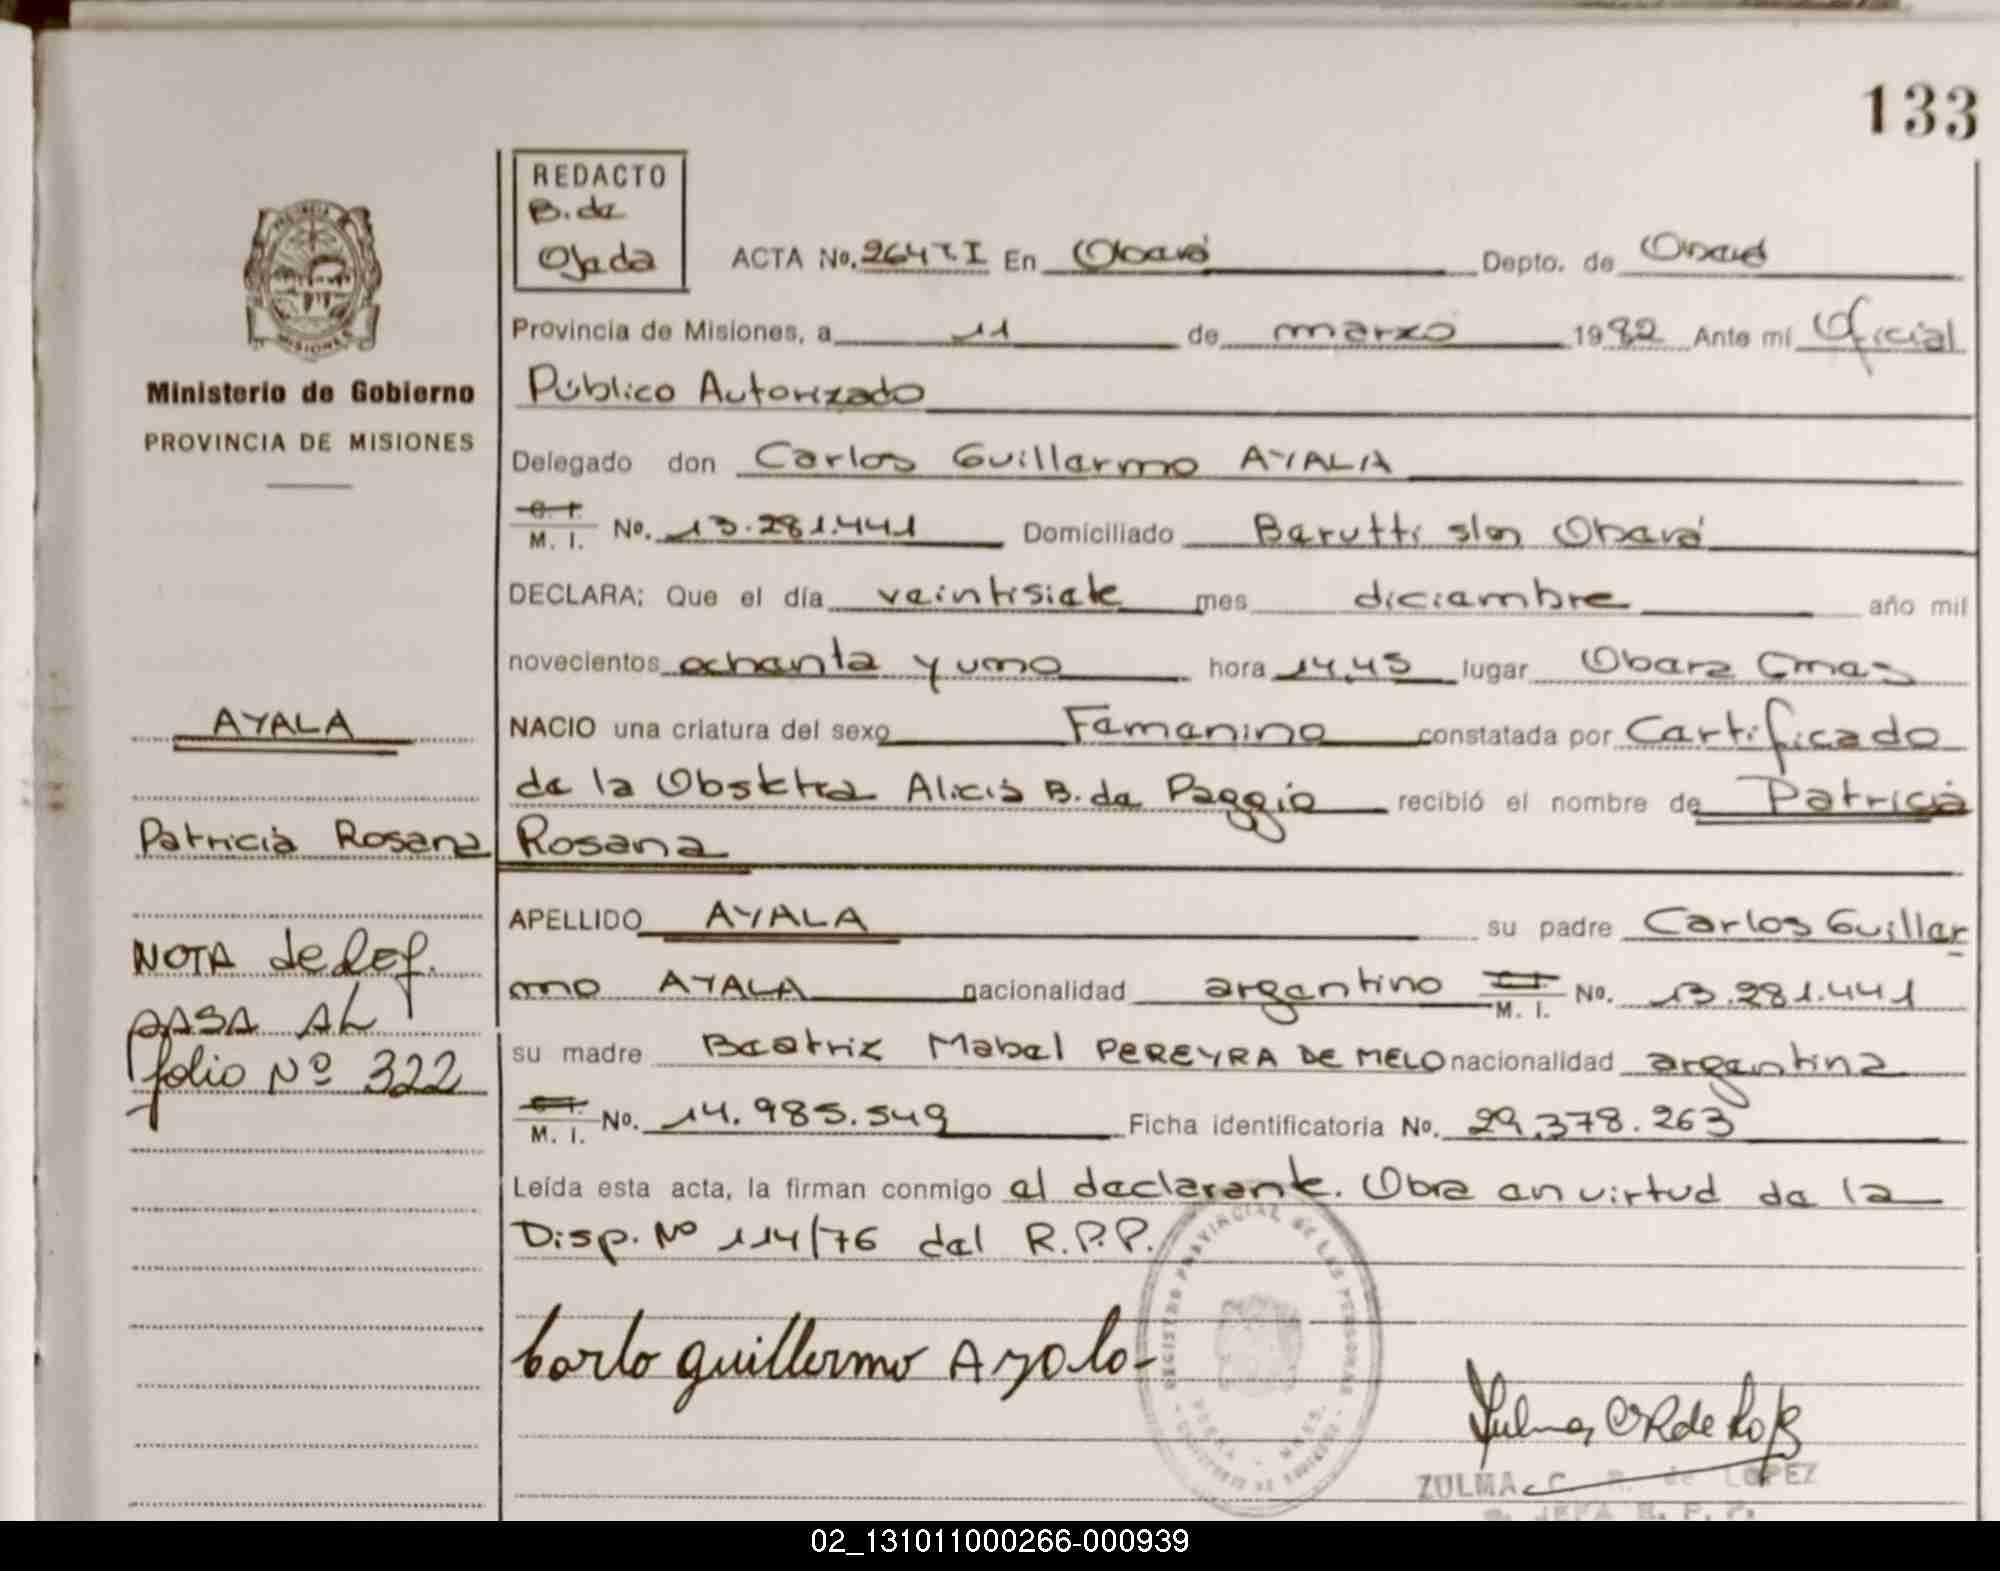 133
REDACTO
B. de
Ojeda
ACTA No. 264 T I En Oberá Depto. de Oberá
Provincia de Misiones, a 11 de marzo 1982 Ante mí Oficial
Público Autorizado
Delegado don Carlos Guillermo AYALA
C. I. M. I. No. 13.281.441 Domiciliado Barutti s/n Oberá
DECLARA: Que el día veintisiete mes diciembre año mil
novecientos ochenta y uno hora 14,45 lugar Obera Cmas
NACIO una criatura del sexo Femenino constatada por Certificado
de la Obstetra Alicia B. de Paggio recibió el nombre de Patricia
Rosana
APELLIDO AYALA su padre Carlos Guiller
mo AYALA nacionalidad argentino C. I. M. I. No. 13.281.441
su madre Beatriz Mabel PEREYRA DE MELO nacionalidad argentina
C. I. M. I. No. 14.985.549 Ficha identificatoria No. 29.378.263
Leída esta acta, la firman conmigo el declarante. Obra en virtud de la
Disp. Nº 114/76 del R.P.P.
Carlo guillermo Ayala-
REGISTRO PROVINCIAL DE LAS PERSONAS
ZULMA C. R. de LOPEZ
JEFA R. P. P.
MISIONES
Ministerio de Gobierno
PROVINCIA DE MISIONES
AYALA
Patricia Rosana
NOTA de Ref.
PASA AL
folio Nº 322
02_131011000266-000939